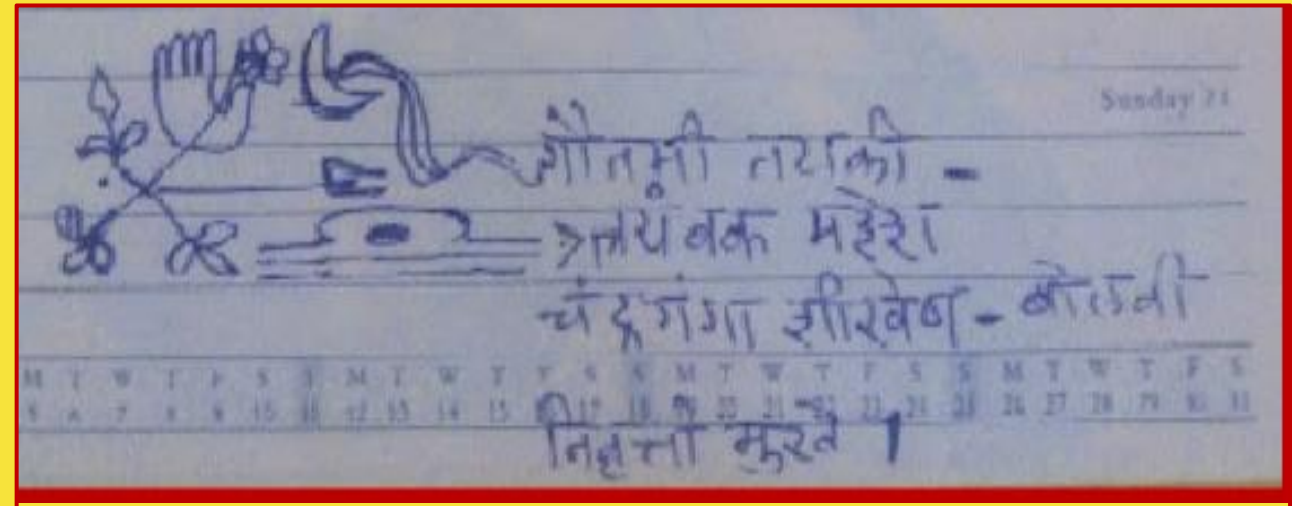 Sunday 21
गौतमी तटाकी -
त्रयंबक महेश
चंद्रगंगा शीरवेण - बोलती
M T W T F S S M T W T F S S M T W T F S S M T W T F S
5 6 7 8 9 10 11 12 13 14 15 16 17 18 19 20 21 22 23 24 25 26 27 28 29 30 31
निवृत्ती मुरते ।